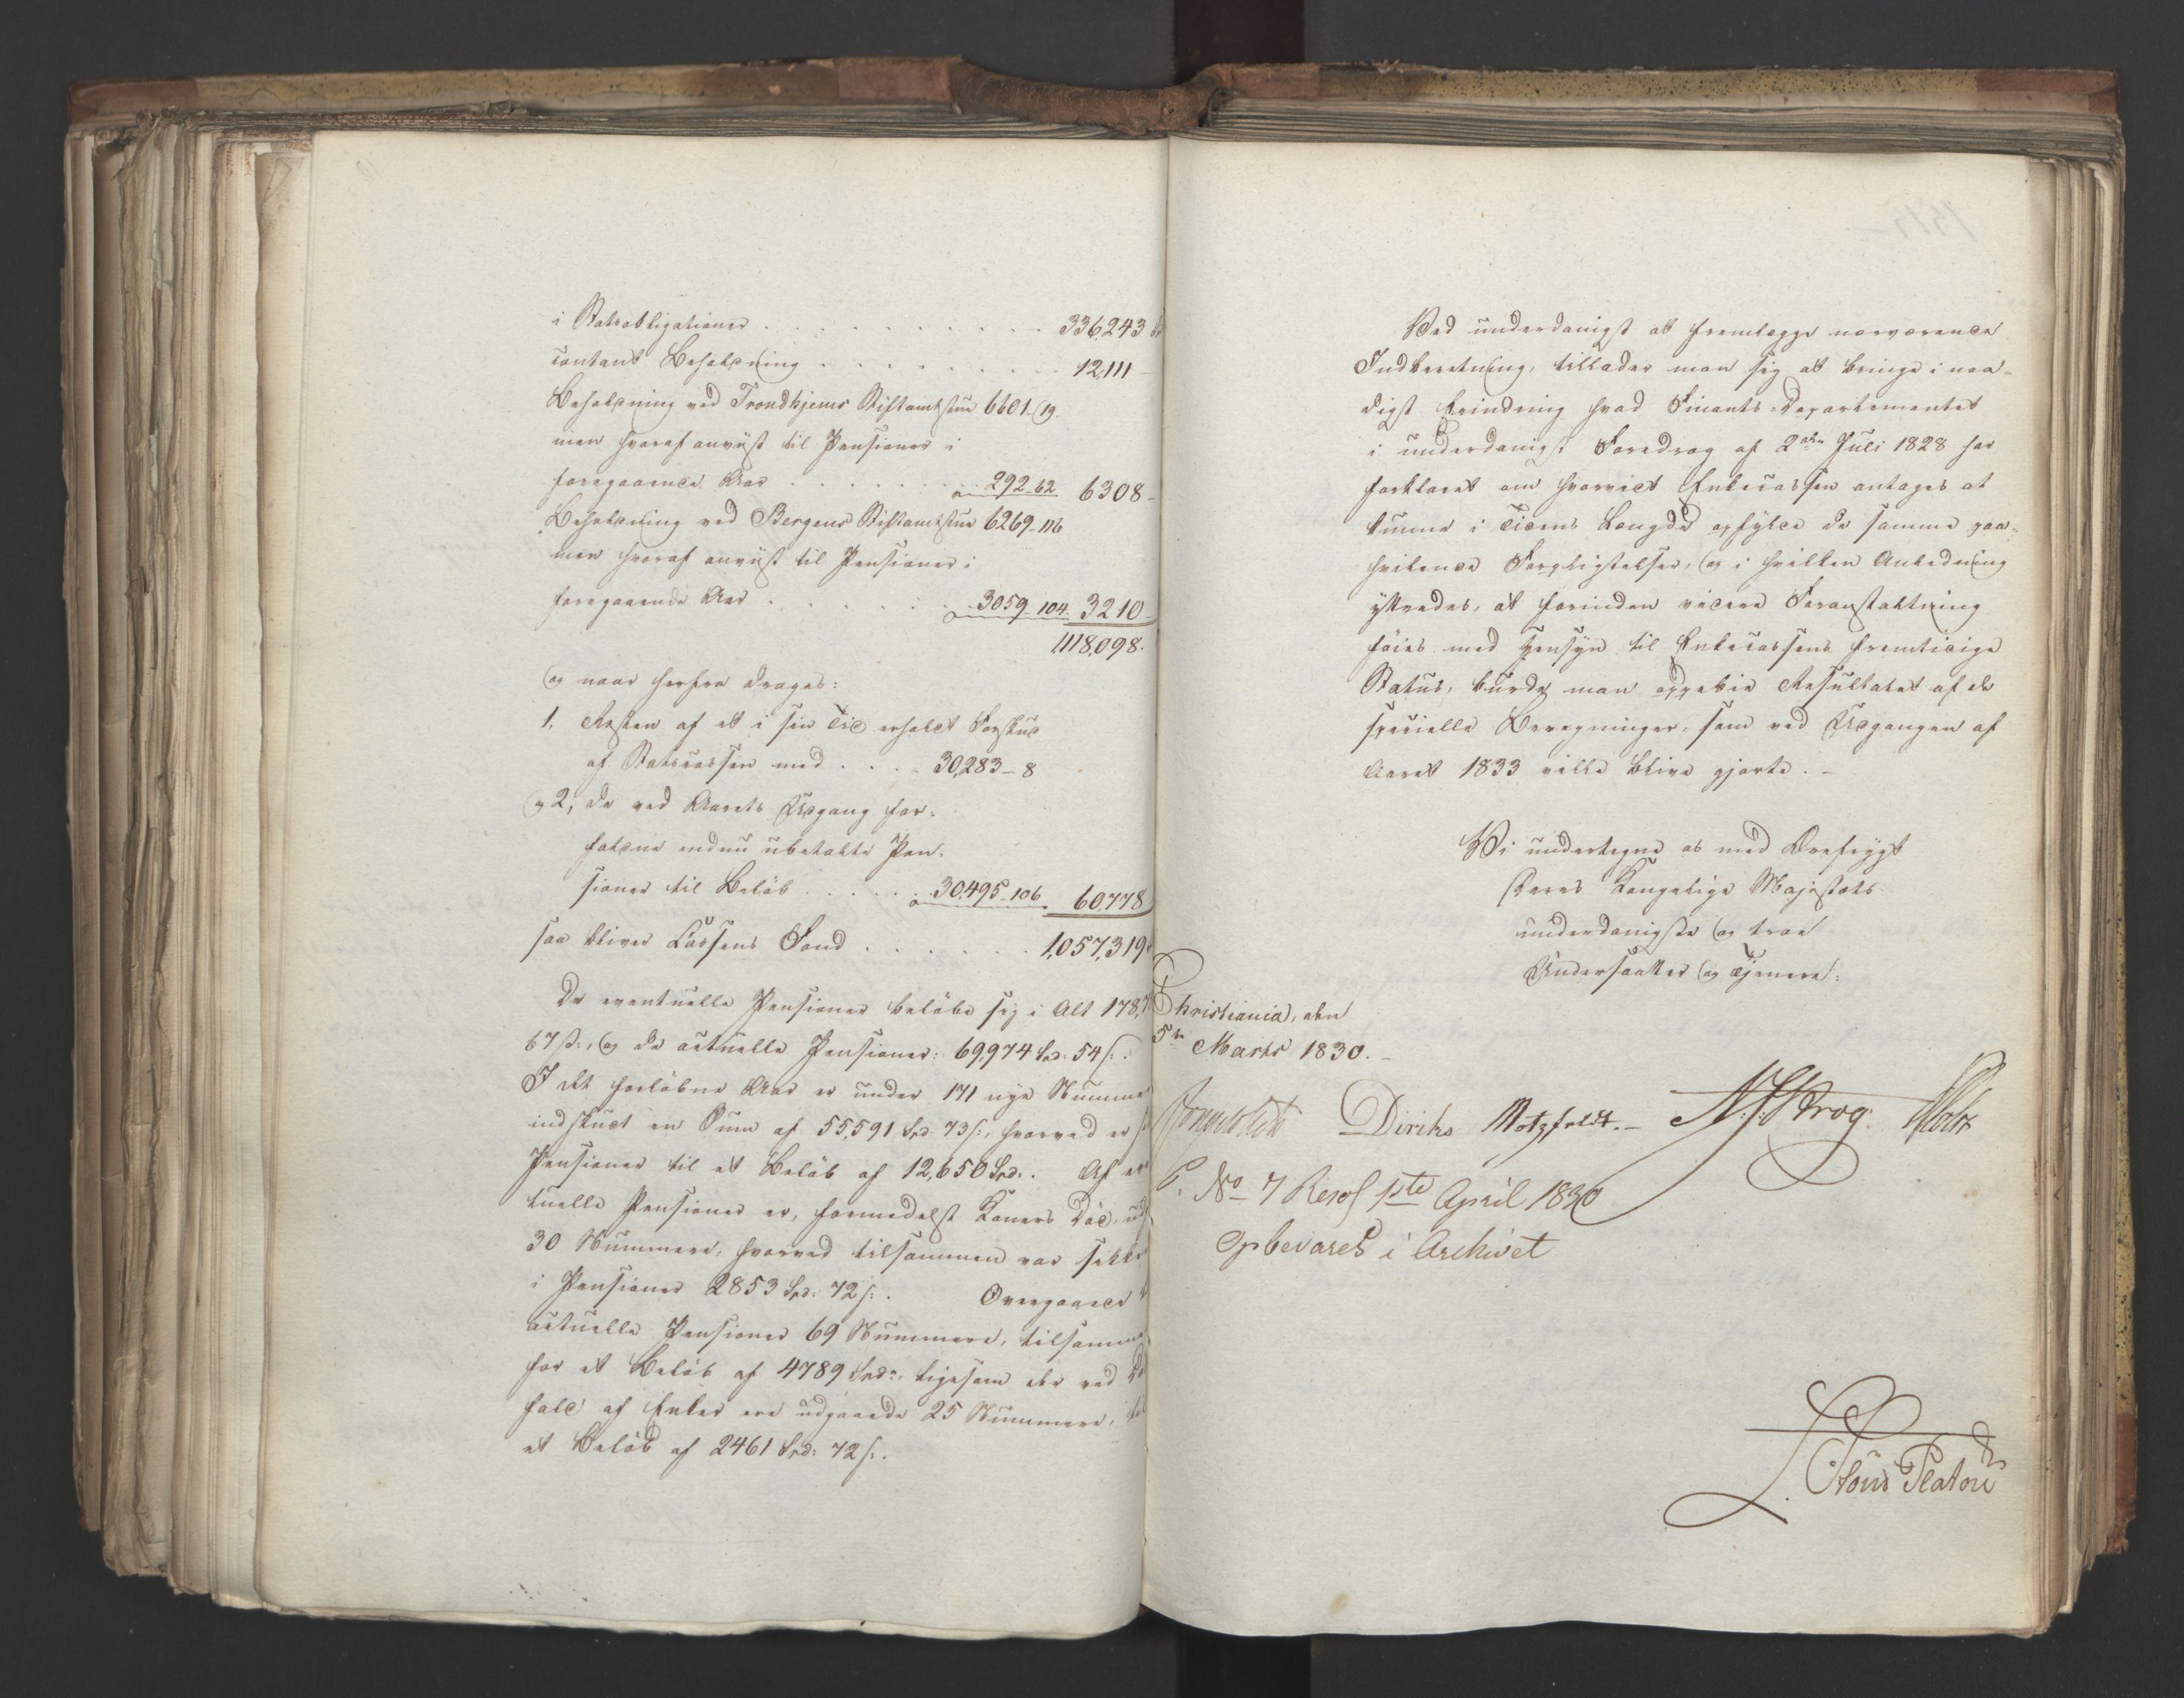 i Statsobligationer . . . . . . . . . . . 336,243
contant Beholdning . . . . . . . . . . 12,111 –
Beholdning ved Trondhjems Stiftamtstue 6601 – 19.
men hvoraf anviist til Pensioner i
foregaaende Aar . . . . . . . . 292 – 62. 6308 –
Beholdning ved Bergens Stiftamtstue 6269 – 116
men hvoraf anviist til Pensioner i
foregaaende Aar . . . . . . 3059 – 104. 3210 –
1,118,098.
og naar herfra drages:
1, Resten af et i sin Tid erholdt Forskud
af Statscassen med . . . . 30,283 – 8
og 2, de ved Aarets Udgang for-
faldne endnu ubetalte Pen-
sioner til Beløb . . . . . 30,495 – 106. 60,778
saa bliver Cassens Fond . . . . . . 1,057,319
De eventuelle Pensioner beløbe sig i Alt 178,7
67 ß:, og de actuelle Pensioner: 69,974 Spd: 54 ß:.
I det forløbne Aar er under 171 nye Numme
indskudt en Sum af 55,591 Spd: 73 ß:, hvorved er
Pensioner til et Beløb af 12,650 Spd:. Af
tuelle Pensioner er, formedelst Koners Död, ud
30 Nummere, hvorved tilsammen var
i Pensioner 2853 Spd: 72 ß:. Overgaaed
actuelle Pensioner 69 Nummere, tilsamme
for et Beløb af 4789 Spd:, ligesom der ved
fald af Enker ere udgaaede 25 Nummere,
et Beløb af 2461 Spd: 72 ß:.
Ved underdanigst at fremlægge nærværende
Indberetning, tillader man sig at bringe i naa-
digst Erindring hvad Finants-Departementet
i underdanigst Foredrag af 2den Juli 1828 har
forklaret om hvorvidt Enkecassen antages at
kunne i Tidens Længde opfylde de samme paa-
hvilende Forpligtelser, og i hvilken Anledning
yttredes, at forinden videre Foranstaltning
føies med Hensyn til Enkecassens fremtidige
Status, burde man oppebie Resultatet af de
specielle Beregninger, som ved Udgangen af
Aaret 1833 ville blive gjorte. –
Vi undertegne os med Ærefrygt
Deres Kongelige Majestæts
underdanigste og troe
Undersaatter og Tjenere:
Christiania, den
5te Marts 1830. –
Diriks Motzfeldt. – N: J: Krog.
No 7 Resol 1ste April 1830
Opbevares i Archivet